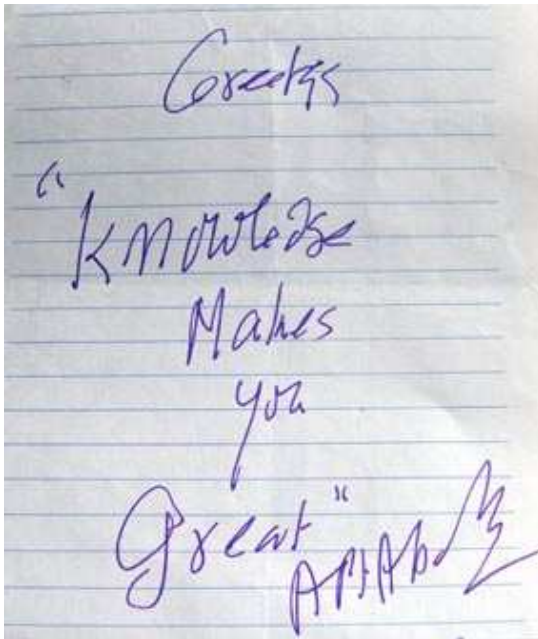 Greetgs
"Knowledge
Makes
you
Great"